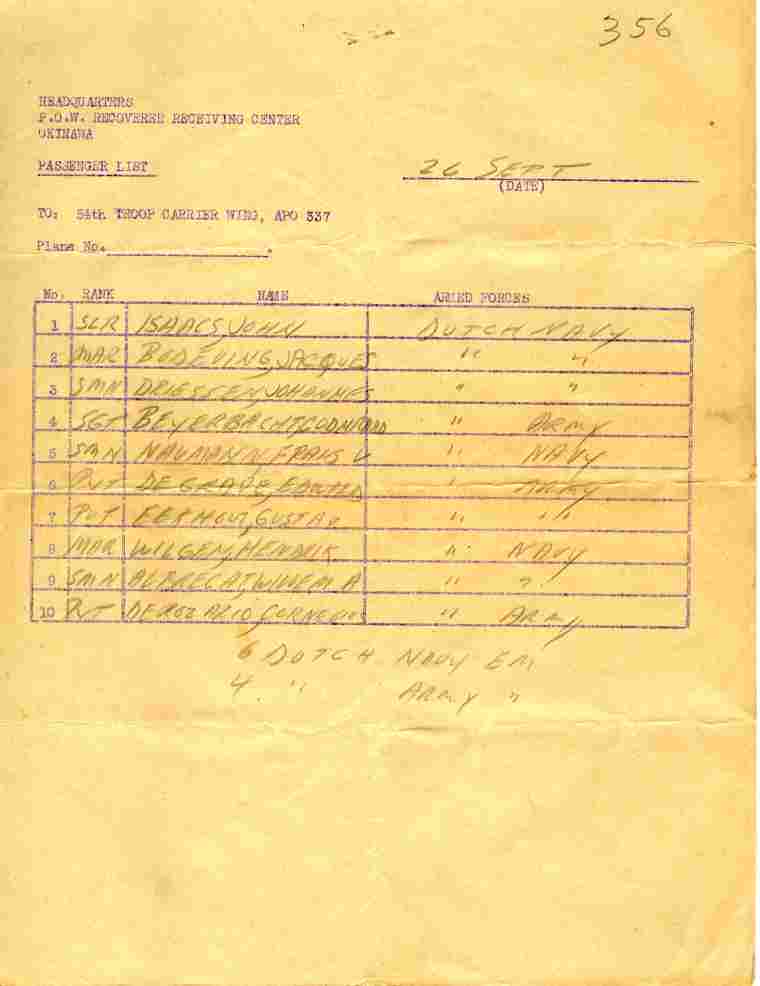 356
HEADQUARTERS
P.O.W. RECOVEREE RECEIVING CENTER
OKINAWA
PASSENGER LIST
26 SEPT
(DATE)
TO: 54th TROOP CARRIER WING, APO 337
Plane No. .
No. RANK NAME ARMED FORCES
1 SLR ISAACS, JOHN DUTCH NAVY
2 MAR BODEVING, JACQUES " "
3 SMN DRIESSEN, JOHANNES " "
4 SGT BEYERBACHT, " ARMY
5 SMN NAUMANN, FRANS V " NAVY
6 PVT DE GRAVE, " ARMY
7 PVT EERHOUT, GUSTAV " "
8 MAR WILGEN, HENDRIK " NAVY
9 SMN ALBRECHT, WILLEM A " "
10 PVT DEROZARIO, CORNELIUS " ARMY
6 DUTCH NAVY EM
4 " ARMY "